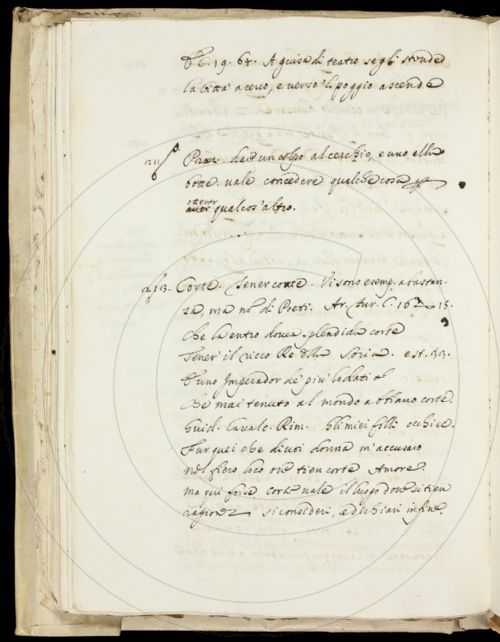 C. 19. 64. A guisa di teatro se gli stende
la Città a cerco, e verso il poggio ascende
Prov. dar un colpo al cerchio, e uno alla
botte. vale concedere qualche cosa
ottener
aver qualcos'altro.
213. Corte. Tener corte. Vi sono esemp. abastan-
za, ma nl. di Poeti. Ar. fur. C. 16 15.
Che là entro dovea splendida corte
Tener' il ricco Re della Soria. e st. 33.
D'uno Imperador de' più lodati
Che mai tenuto al mondo abbiano corte.
Guid. Cavalc. Rim. Gli miei folli occhi
Fur quei che di voi donna m'accusaro
nel fiero loco ove tien corte Amore.
ma qui forse corte vale il luogo dove si tien
ragione si consideri, e dichiari in fine.